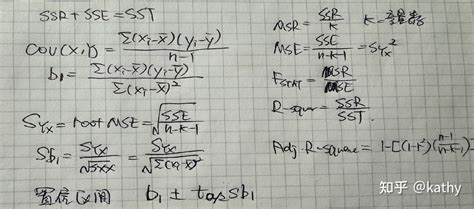 SSR + SSE = SST
COV(X,Y) = Σ(Xi-X̄)(yi-ȳ) / n-1
b1 = Σ(Xi-X̄)(yi-ȳ) / Σ(Xi-X̄)²
SYX = root MSE = √(SSE / n-k-1)
Sb1 = SYX / √SXX = SYX / √Σ(Xi-X̄)²
置信区间 b1 ± tα/2 Sb1
MSR = SSR / K K = 变量数
MSE = SSE / n-k-1 = SYX²
FSTAT = MSR / MSE
R-squar = SSR / SST.
Adj. R-square = 1-[(1-r²)(n-1 / n-k-1)]
知乎 @kathy